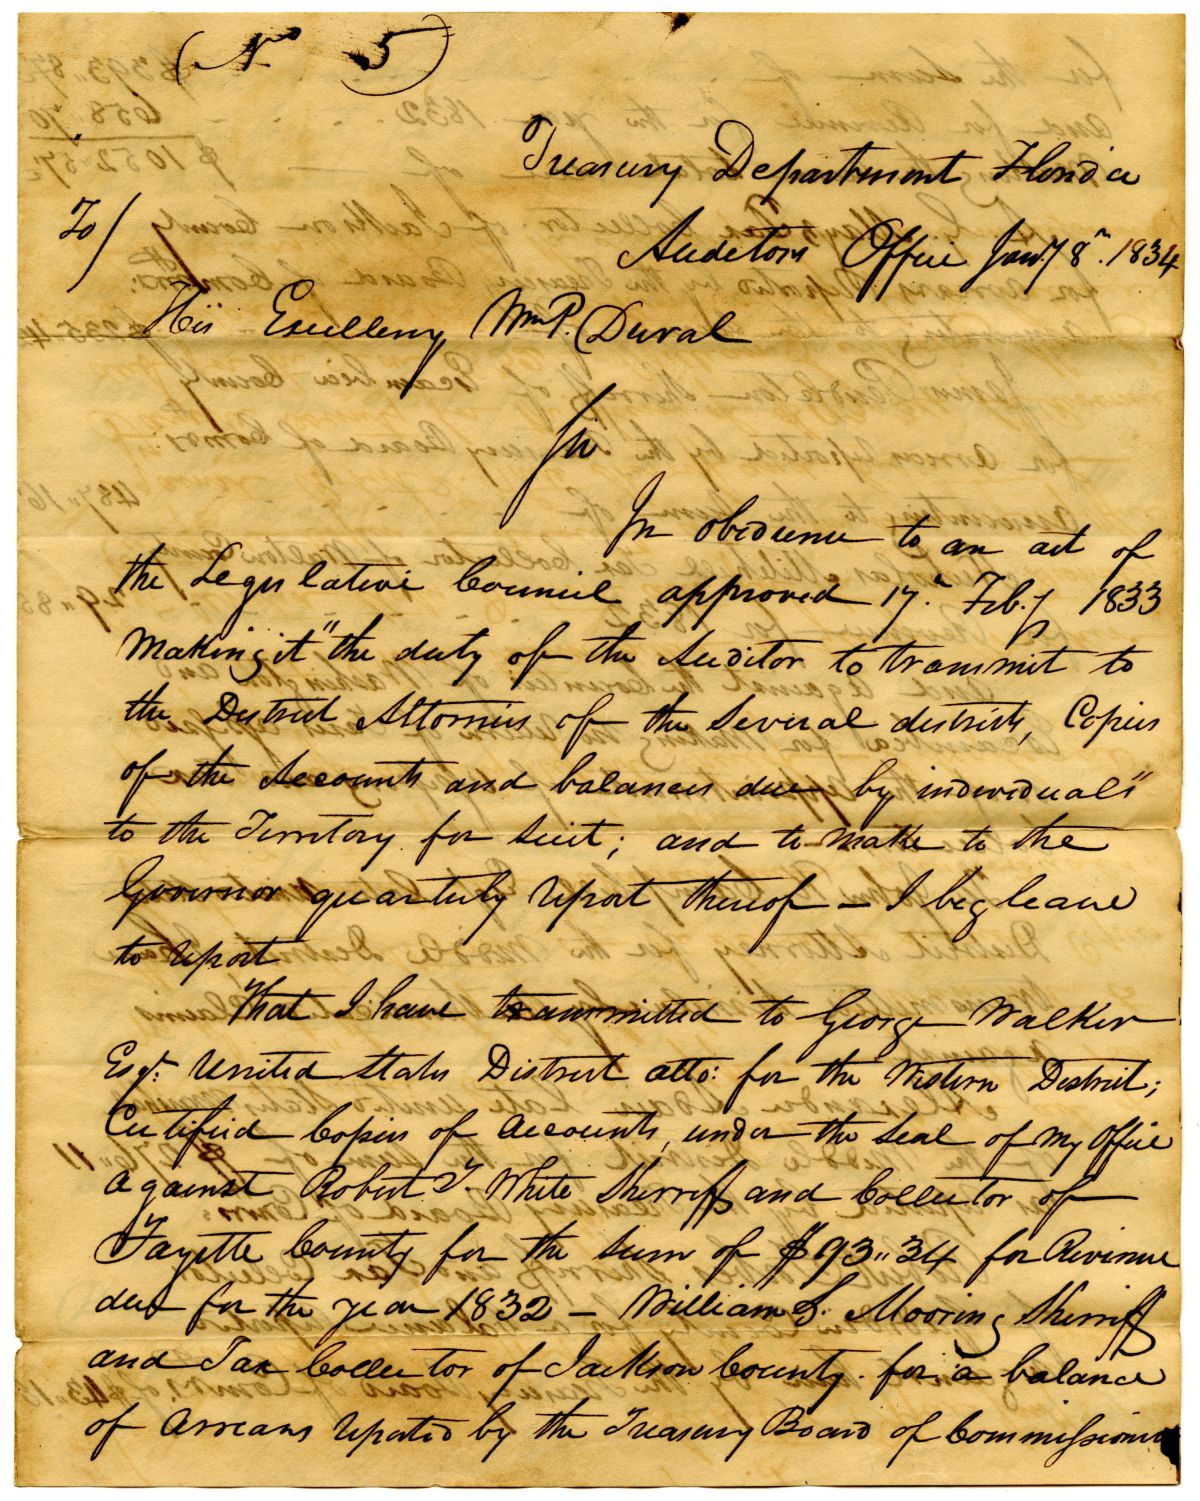 (No 5)
Treasury Department Florida
Auditors Office Jany 8th. 1834
To)
His Excellency Wm P. Duval
Sir
In obedience to an act of
the Legislative Council approved 17th Feby 1833
making it "the duty of the Auditor to transmit to
the District Attornies of the several districts, Copies
of the Accounts and balances due by individuals"
to the Territory for suit; and to make to the
Governor quarterly report thereof — I beg leave
to report
That I have transmitted to George Walker
Esqr. United States District atto: for the Western District;
Certified Copies of Accounts, under the seal of my Office
against Robert T. White Sherriff and Collector of
Fayette County for the sum of $93"34 for Revenue
due for the year 1832 — William S. Mooring Sherriff
and Tax Collector of Jackson County for a balance
of Arrears reported by the Treasury Board of Commissioners